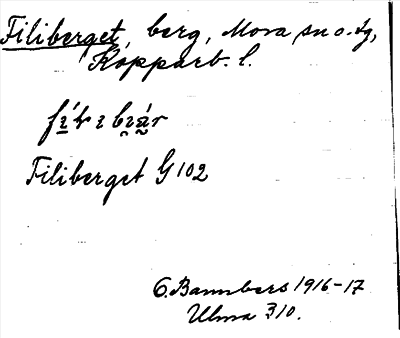 Filiberget, berg, Mora sn o. tg,
Kopparb. l.
Filiberget G 102
O. Bannbers 1916-17
Ulma 310.